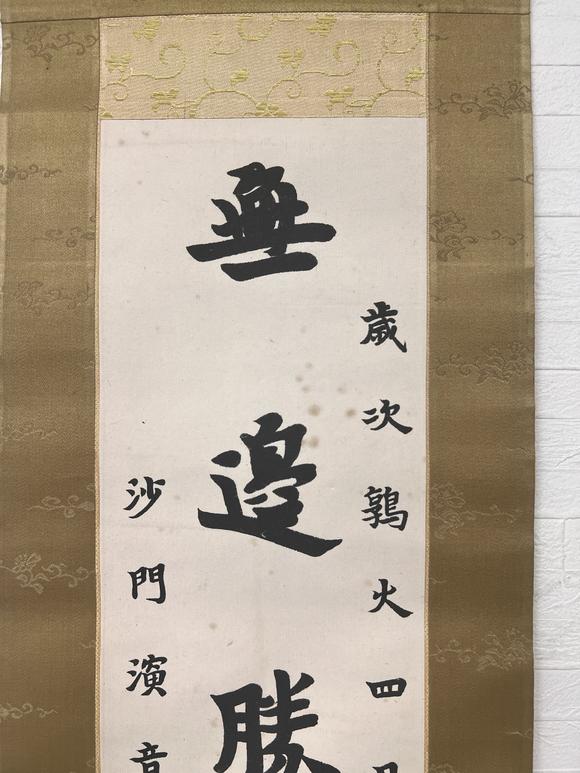 歲次鶉火四
無邊勝
沙門演音